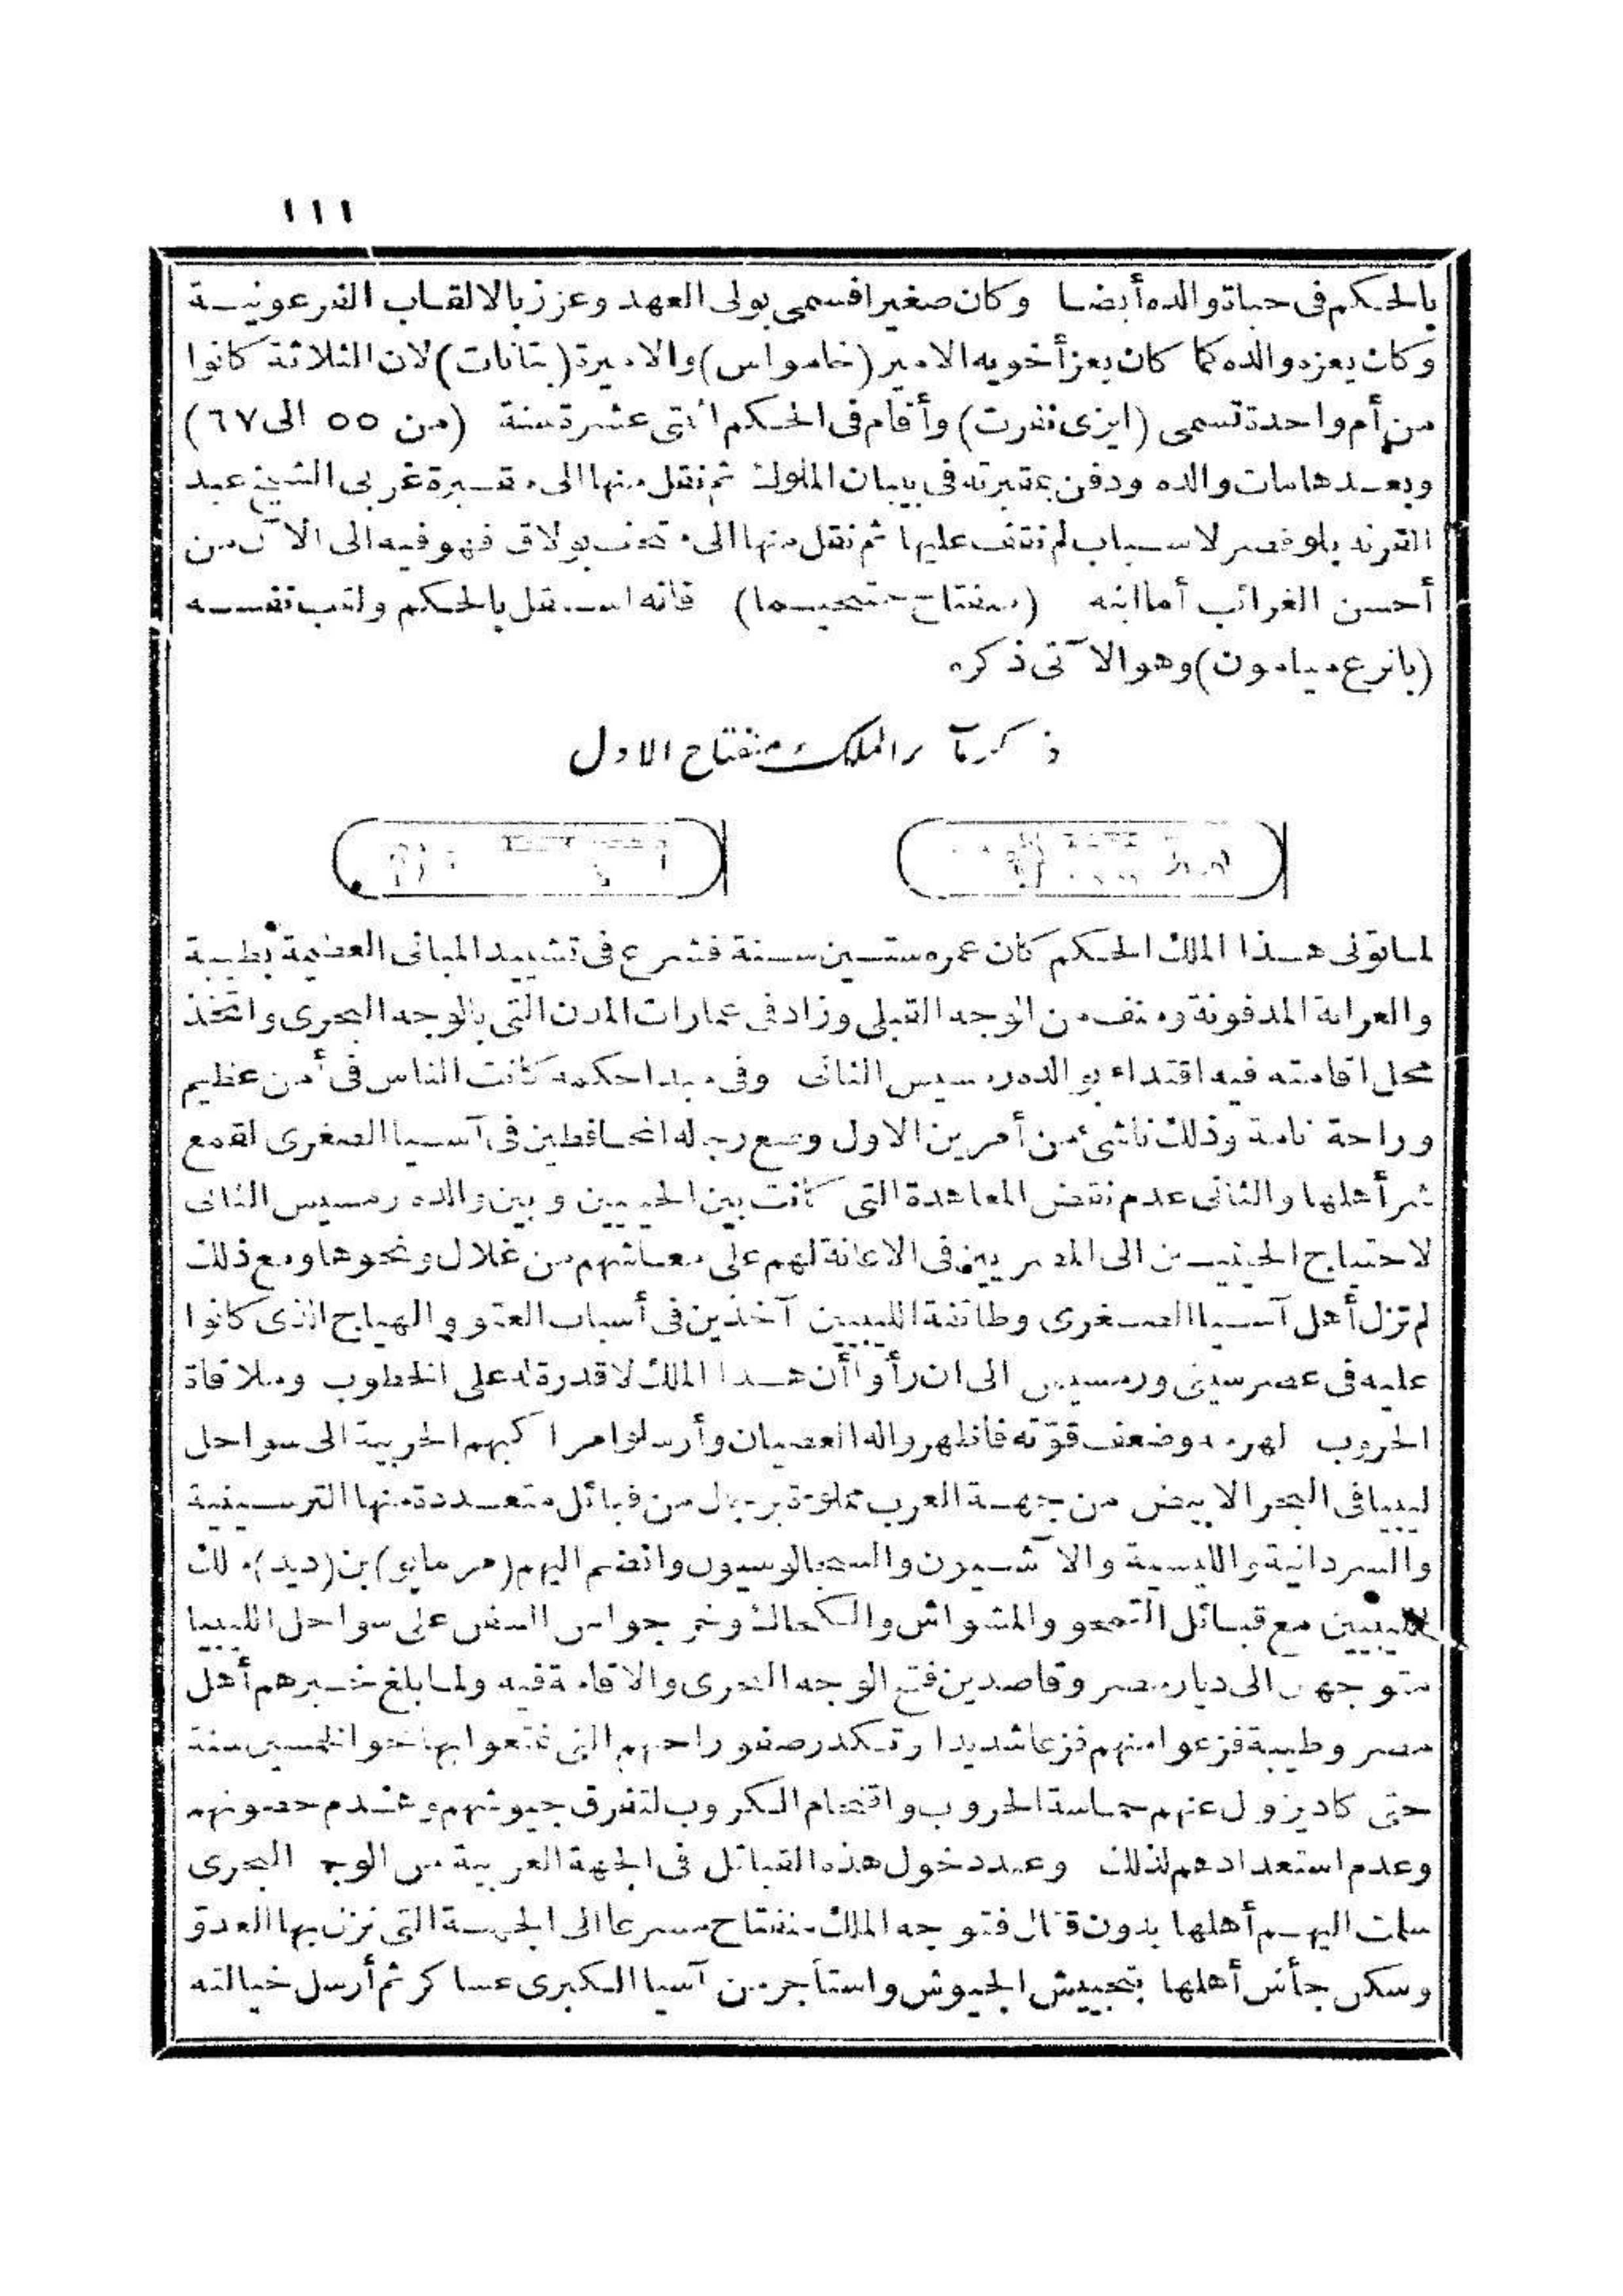 ١١١
بالحكم فى حياة والده أيضا وكان صغيرا فسمى بولى العهد وعزز بالالقاب الفرعونية
وكان يعزه والده كما كان يعز أخويه الامير (خامواس) والاميرة (بتانات) لان الثلاثة كانوا
من أم واحدة تسمى (ايزى نفرت) وأقام فى الحكم اثنتى عشرة سنة (من ٥٥ الى ٦٧)
وبعدها مات والده ودفن بمقبرته فى بيبان الملوك ثم نقل منها الى مقبرة غربى الشيخ عبد
القرنه بلوقصر لاسباب لم نقف عليها ثم نقل منها الى متحف بولاق فهو فيه الى الآن من
أحسن الغرائب أما ابنه (منفتاح حتحيما) فانه استقل بالحكم ولقب نفسه
(بانرع ميامون) وهو الآتى ذكره
ذكر مآثر الملك منفتاح الاول
لما تولى هذا الملك الحكم كان عمره ستين سنة فشرع فى تشييد المبانى العظيمة بطيبة
والعرابة المدفونة ومنف من الوجه القبلى وزاد فى عمارات المدن التى بالوجه البحرى واتخذ
محل اقامته فيه اقتداء بوالده رمسيس الثانى وفى مبدا حكمه كانت الناس فى أمن عظيم
وراحة تامة وذلك ناشئ من أمرين الاول وضع رجاله المحافظين فى آسيا الصغرى لقمع
شر أهلها والثانى عدم نقض المعاهدة التى كانت بين الحيثيين وبين والده رمسيس الثانى
لاحتياج الحيثيين الى المصريين فى الاعانة لهم على معاشهم من غلال ونحوها ومع ذلك
لم تزل أهل آسيا الصغرى وطائفة الليبيين آخذين فى أسباب العتو والهياج الذى كانوا
عليه فى عصر سيتى ورمسيس الى ان رأوا أن هذا الملك لا قدرة له على الخطوب وملاقاة
الحروب لهرمه وضعف قوّته فاظهروا له العصيان وأرسلوا مراكبهم الحربية الى سواحل
ليبيا فى البحر الابيض من جهة الغرب مملوءة برجال من قبائل متعددة منها الترسينية
والسردانية والليسية والآشيون والسجالوسيون وانضم اليهم (مرمايو) بن (ديد) ملك
الليبيين مع قبائل التمحو والمشواش والكحاك وخرجوا من السفن على سواحل الليبيا
متوجهين الى ديار مصر وقاصدين فتح الوجه البحرى والاقامة فيه ولما بلغ خبرهم أهل
مصر وطيبة فزعوا منهم فزعا شديدا وتكدر صفو راحتهم التى تمتعوا بها نحو الخمسين سنة
حتى كاد يزول عنهم حماسة الحروب واقتحام الكروب لتفرق جيوشهم وهدم حصونهم
وعدم استعدادهم لذلك وعند دخول هذه القبائل فى الجهة الغربية من الوجه البحرى
سلمت اليهم أهلها بدون قتال فتوجه الملك منفتاح مسرعا الى الجهة التى نزل بها العدوّ
وسكن جأش أهلها بتجييش الجيوش واستأجر من آسيا الكبرى عساكر ثم أرسل خيالته